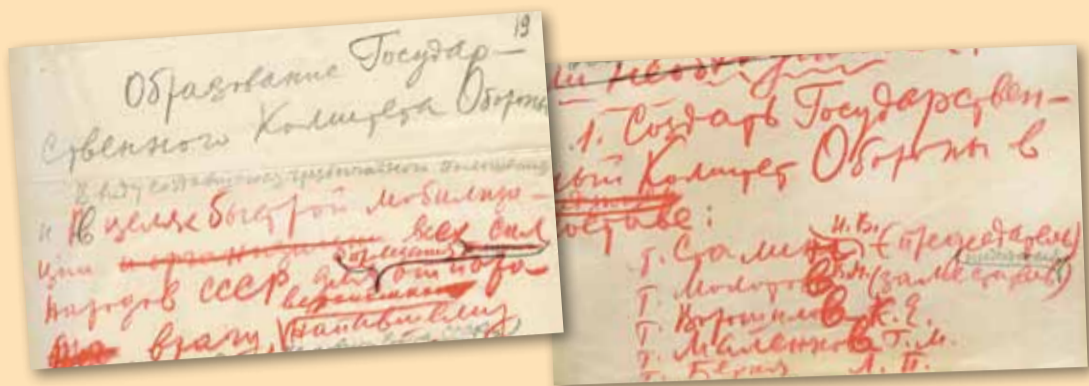 19
Образование Государ-
ственного Комитета Обороны
В виду создавшегося чрезвычайного положения
и в целях быстрой мобилиза-
ции всех сил
народов СССР для отпора
врагу,
1. Создать Государствен-
ный Комитет Обороны в
составе:
т. Сталин И.В. (председатель)
т. Молотов В.М. (заместитель)
т. Ворошилов К.Е.
т. Маленков Г.М.
т. Берия Л.П.